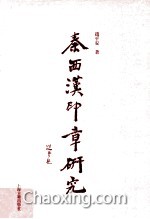 赵平安 著
秦西漢印章研究
上海古籍出版社
Chaoxing.com